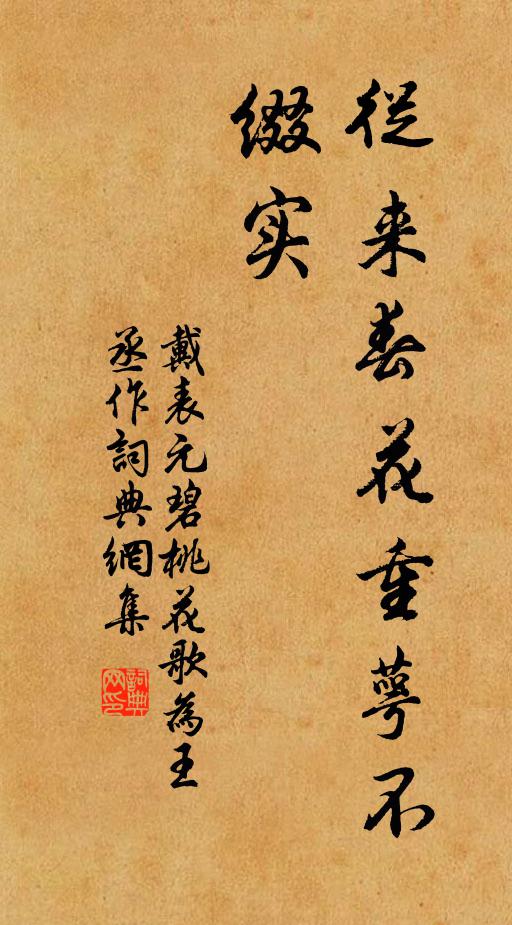 従来春花重萼不
缀实
戴表元碧桃花歌為王
丞作詞典網集
詞典
网印